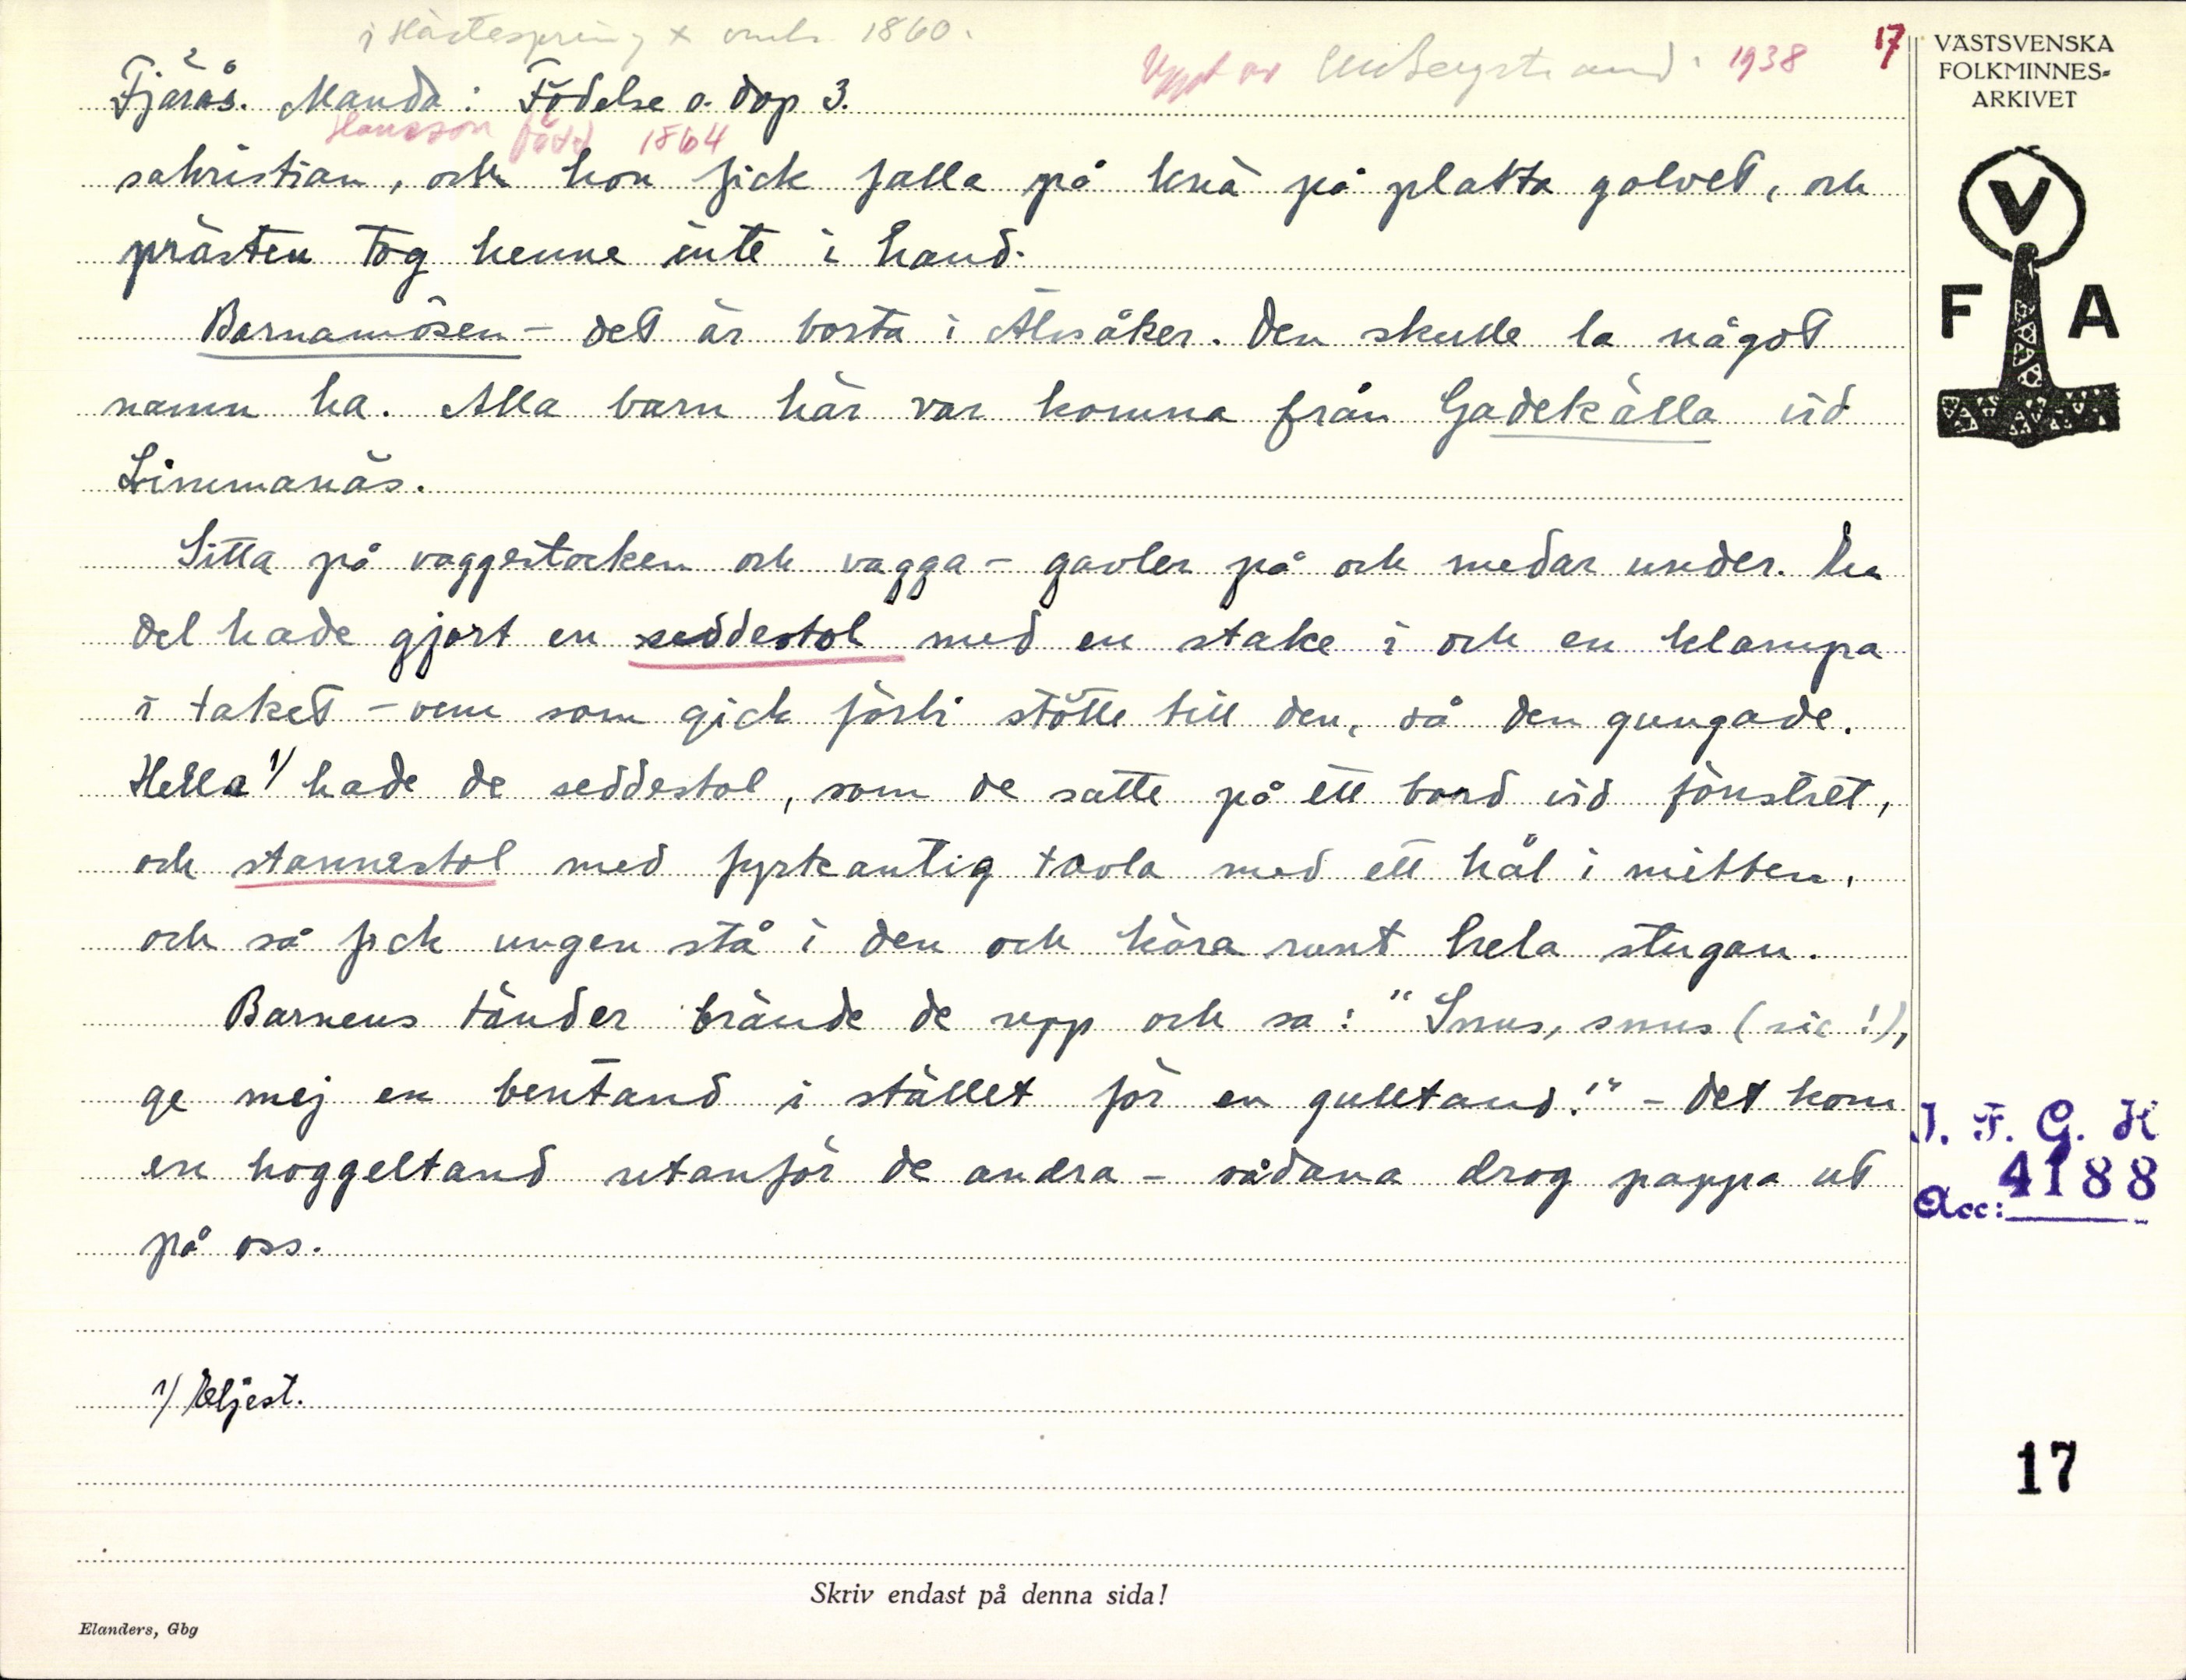 i Hästespring x omkr. 1860.
Uppt av CM Bergstrand. 1938
17
Fjärås. Manda: Födelse o. dop 3.
Hansson född 1864
sakristian, och hon fick falla på knä på platta golvet, och
prästen tog henne inte i hand.
Barnamosen - det är borta i Älvsåker. Den skulle la något
namn ha. Alla barn här var komna från Gadekälla vid
Limmanäs.
Sitta på vaggestocken och vagga - gavler på och medar under. En
del hade gjort en seddestol med en stake i och en klampa
i taket - vem som gick förbi stötte till den, så den gungade.
Hella 1/ hade de seddestol, som de satte på ett bord vid fönstret,
och stannestol med fyrkantig tavla med ett hål i mitten,
och så fick ungen stå i den och köra runt hela stugan.
Barnens tänder brände de upp och sa: "Snus, snus (sic!),
ge mej en bentand i stället för en gulltand!" - Det kom
en hoggeltand utanför de andra - sådana drog pappa ut
på oss.
1/ Eljest.
Skriv endast på denna sida!
Elanders, Gbg
VÄSTSVENSKA
FOLKMINNES-
ARKIVET
V
F A
I. F. G. H
Acc: 4188
17